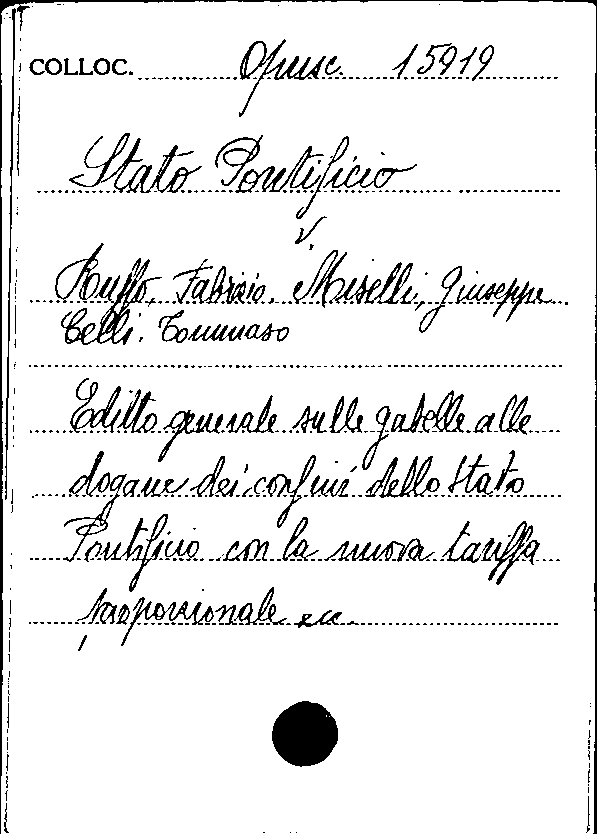 COLLOC. Opusc. 15919
Stato Pontificio
v.
Ruffo, Fabrizio. Miselli, Giuseppe
Celli. Tommaso
Editto generale sulle gabelle alle
dogane dei confini dello Stato
Pontificio con la nuova tariffa
proporzionale ecc.